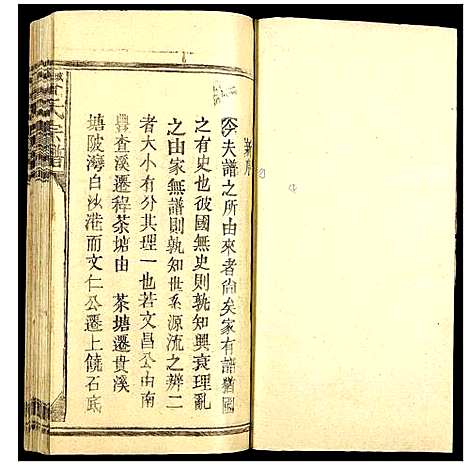 新序
今夫譜之所由來者尙矣家有譜猶國
之有史也彼國無史則孰知興衰理亂
之由家無譜則孰知世系源流之辨二
者大小有分其理一也若文昌公由南
豐查溪遷稗茶塘由 茶塘遷貴溪
塘陂灣白汝港而文仁公遷上饒石底
氏宗譜